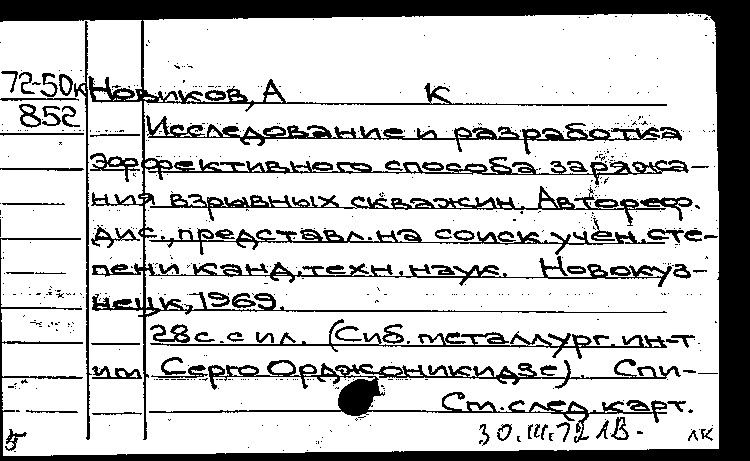 72-50к Новиков, А К
852 Исследование и разработка
эффективного способа заряжа-
ния взрывных скважин. Автореф.
дис., представл. на соиск. учен. сте-
пени канд. техн. наук. Новокуз-
нецк, 1969.
28 с. с ил. (Сиб. металлург. ин-т
им. Серго Орджоникидзе). Спи-
См. след. карт.
30.III.72 ЛК